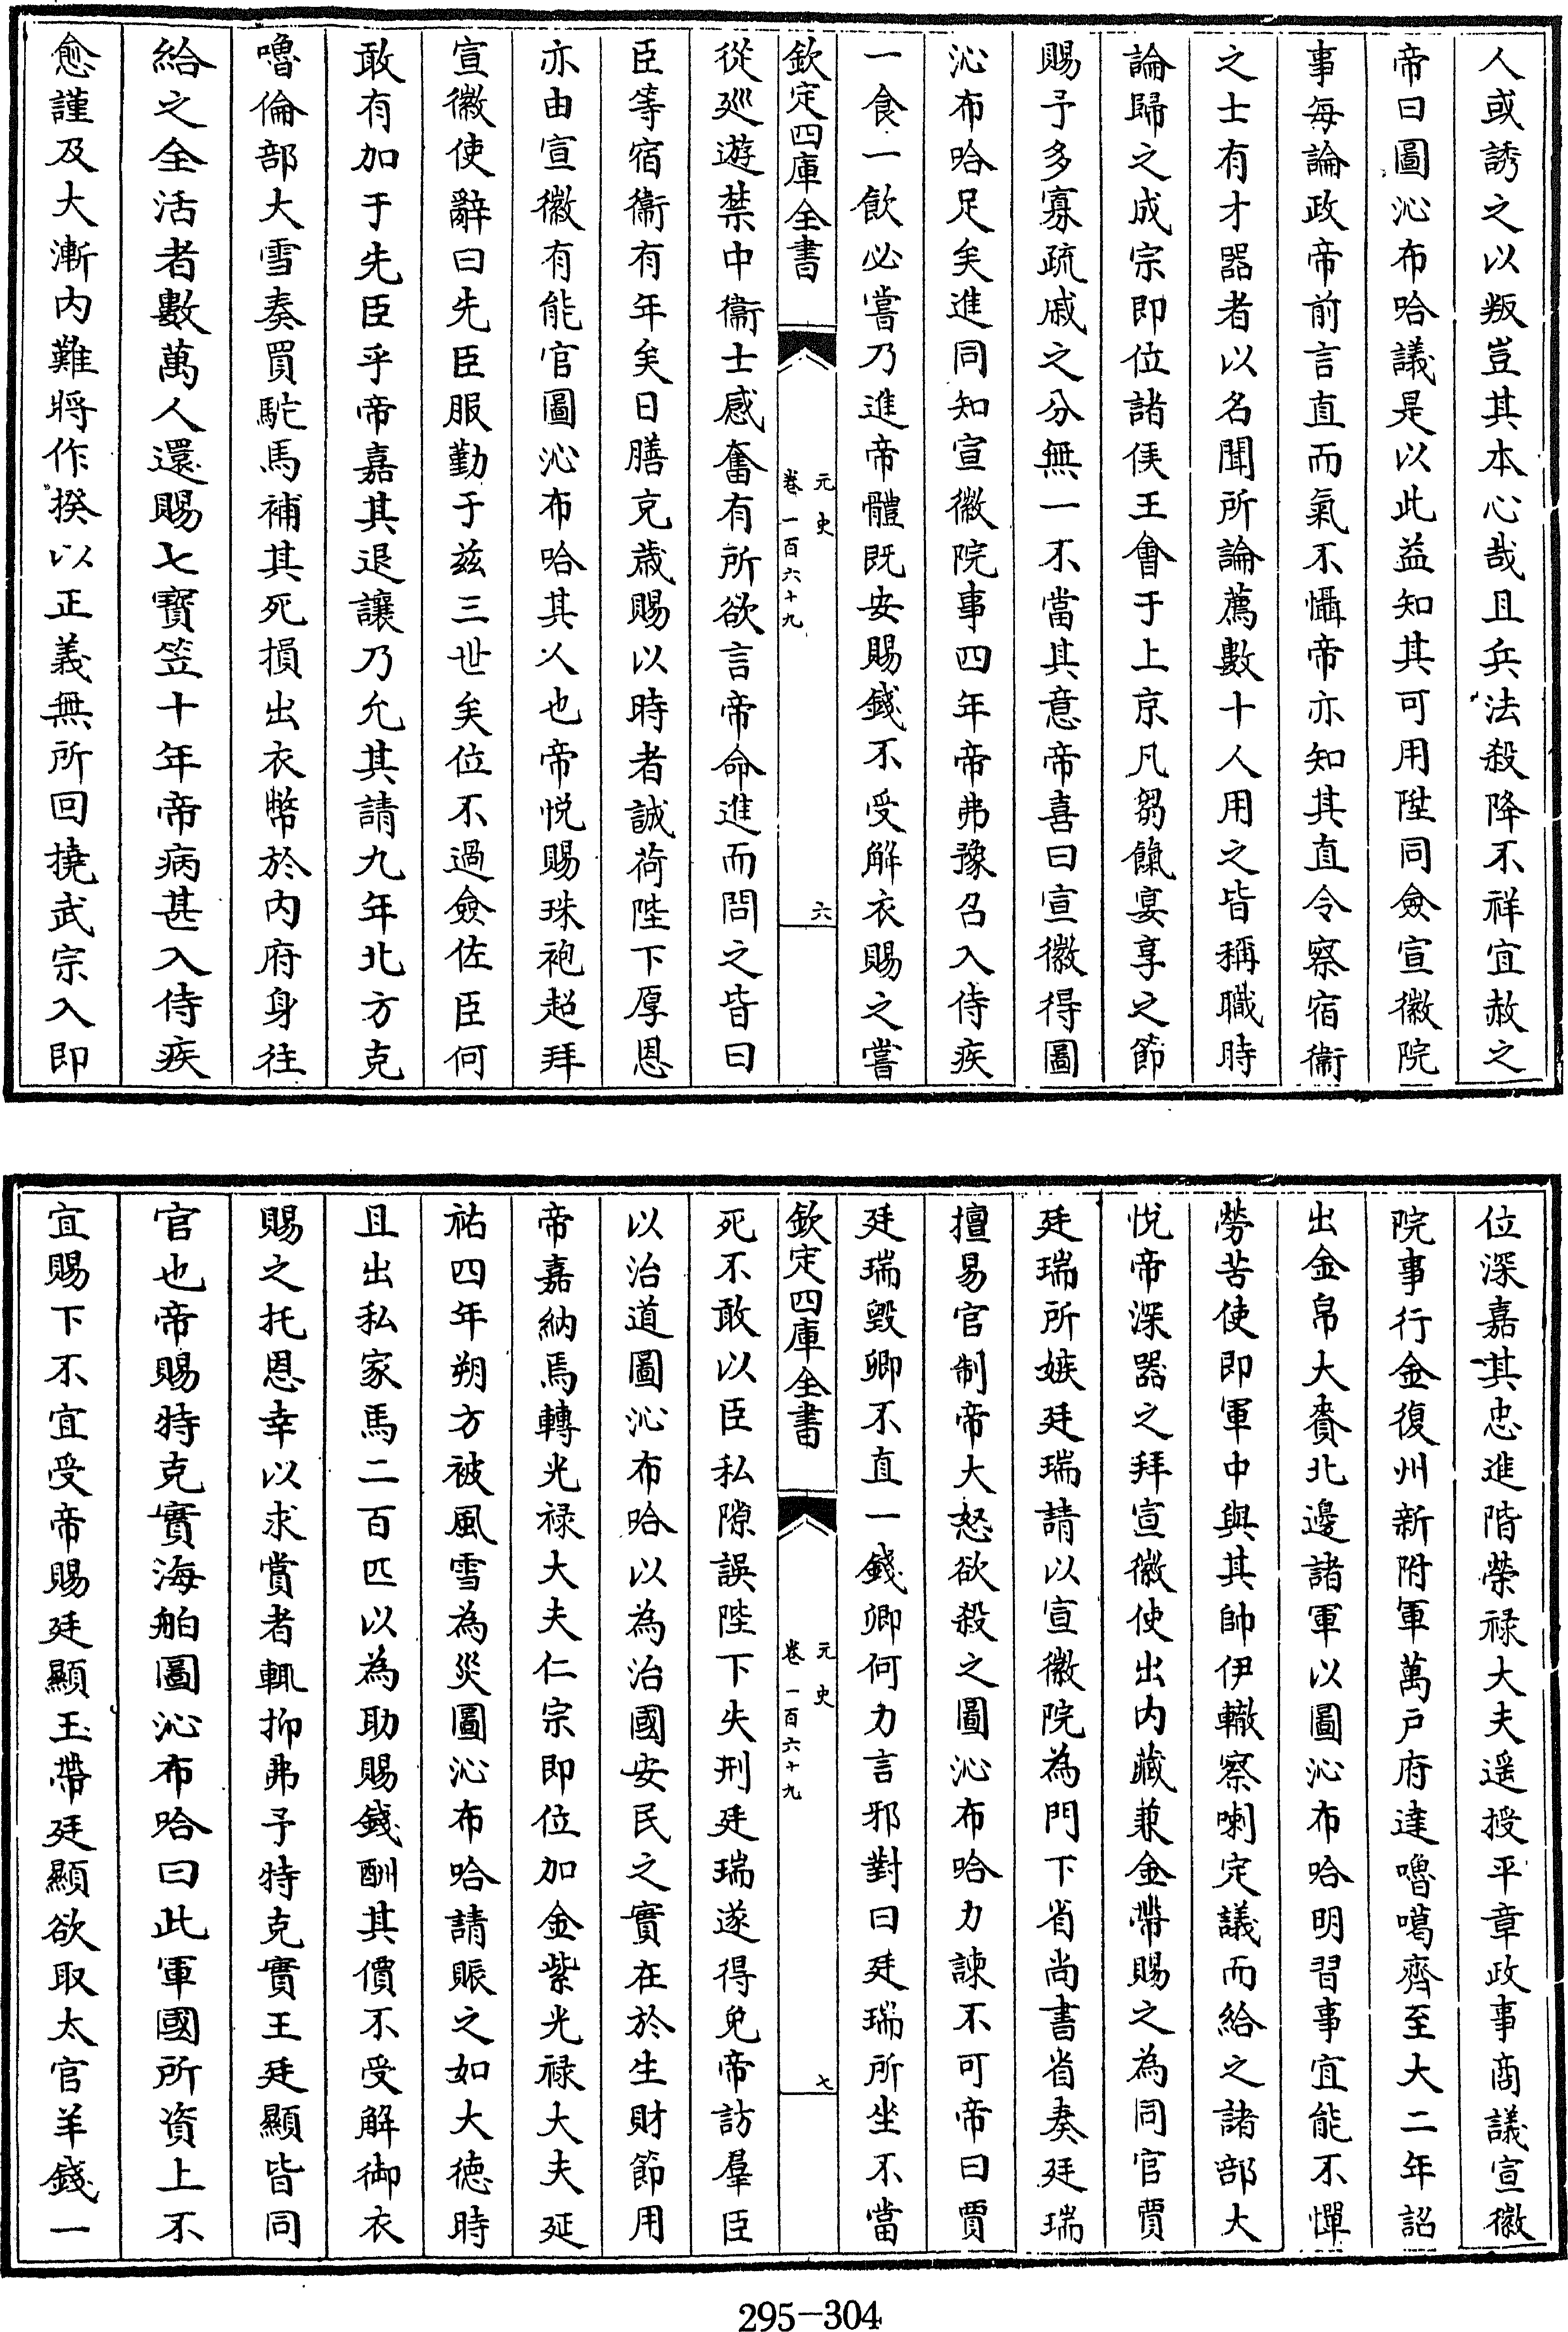 人或誘之以叛豈其本心哉且兵法殺降不祥宜赦之
帝曰圖沁布哈議是以此益知其可用陞同僉宣徽院
事每論政帝前言直而氣不懾帝亦知其直令察宿衞
之士有才器者以名聞所論薦數十人用之皆稱職時
論歸之成宗即位諸侯王會于上京凡芻餼宴享之節
賜予多寡疏戚之分無一不當其意帝喜曰宣徽得圖
沁布哈足矣進同知宣徽院事四年帝弗豫召入侍疾
一食一飲必嘗乃進帝體既安賜錢不受解衣賜之嘗
欽定四庫全書
元史
卷一百六十九
六
從廵遊禁中衞士感奮有所欲言帝命進而問之皆曰
臣等宿衞有年矣日膳充歲賜以時者誠荷陛下厚恩
亦由宣徽有能官圖沁布哈其人也帝悅賜珠袍超拜
宣徽使辭曰先臣服勤于兹三世矣位不過僉佐臣何
敢有加于先臣乎帝嘉其退讓乃允其請九年北方克
嚕倫部大雪奏買駝馬補其死損出衣幣於內府身往
給之全活者數萬人還賜七寶笠十年帝病甚入侍疾
愈謹及大漸內難將作揆以正義無所回撓武宗入即
位深嘉其忠進階榮禄大夫遥授平章政事商議宣徽
院事行金復州新附軍萬戸府達嚕噶齊至大二年詔
出金帛大賚北邊諸軍以圖沁布哈明習事宜能不憚
勞苦使即軍中與其帥伊轍察喇定議而給之諸部大
悅帝深器之拜宣徽使出內藏兼金帶賜之為同官賈
廷瑞所嫉廷瑞請以宣徽院為門下省尚書省奏廷瑞
擅易官制帝大怒欲殺之圖沁布哈力諫不可帝曰賈
廷瑞毀卿不直一錢卿何力言邪對曰廷瑞所坐不當
欽定四庫全書
元史
卷一百六十九
七
死不敢以臣私隙誤陛下失刑廷瑞遂得免帝訪羣臣
以治道圖沁布哈以為治國安民之實在於生財節用
帝嘉納焉轉光禄大夫仁宗即位加金紫光禄大夫延
祐四年朔方被風雪為災圖沁布哈請賑之如大徳時
且出私家馬二百匹以為助賜錢酬其價不受解御衣
賜之托恩幸以求賞者輒抑弗予特克實王廷顯皆同
官也帝賜特克實海舶圖沁布哈曰此軍國所資上不
宜賜下不宜受帝賜廷顯玉帶廷顯欲取太官羊錢一
295-304